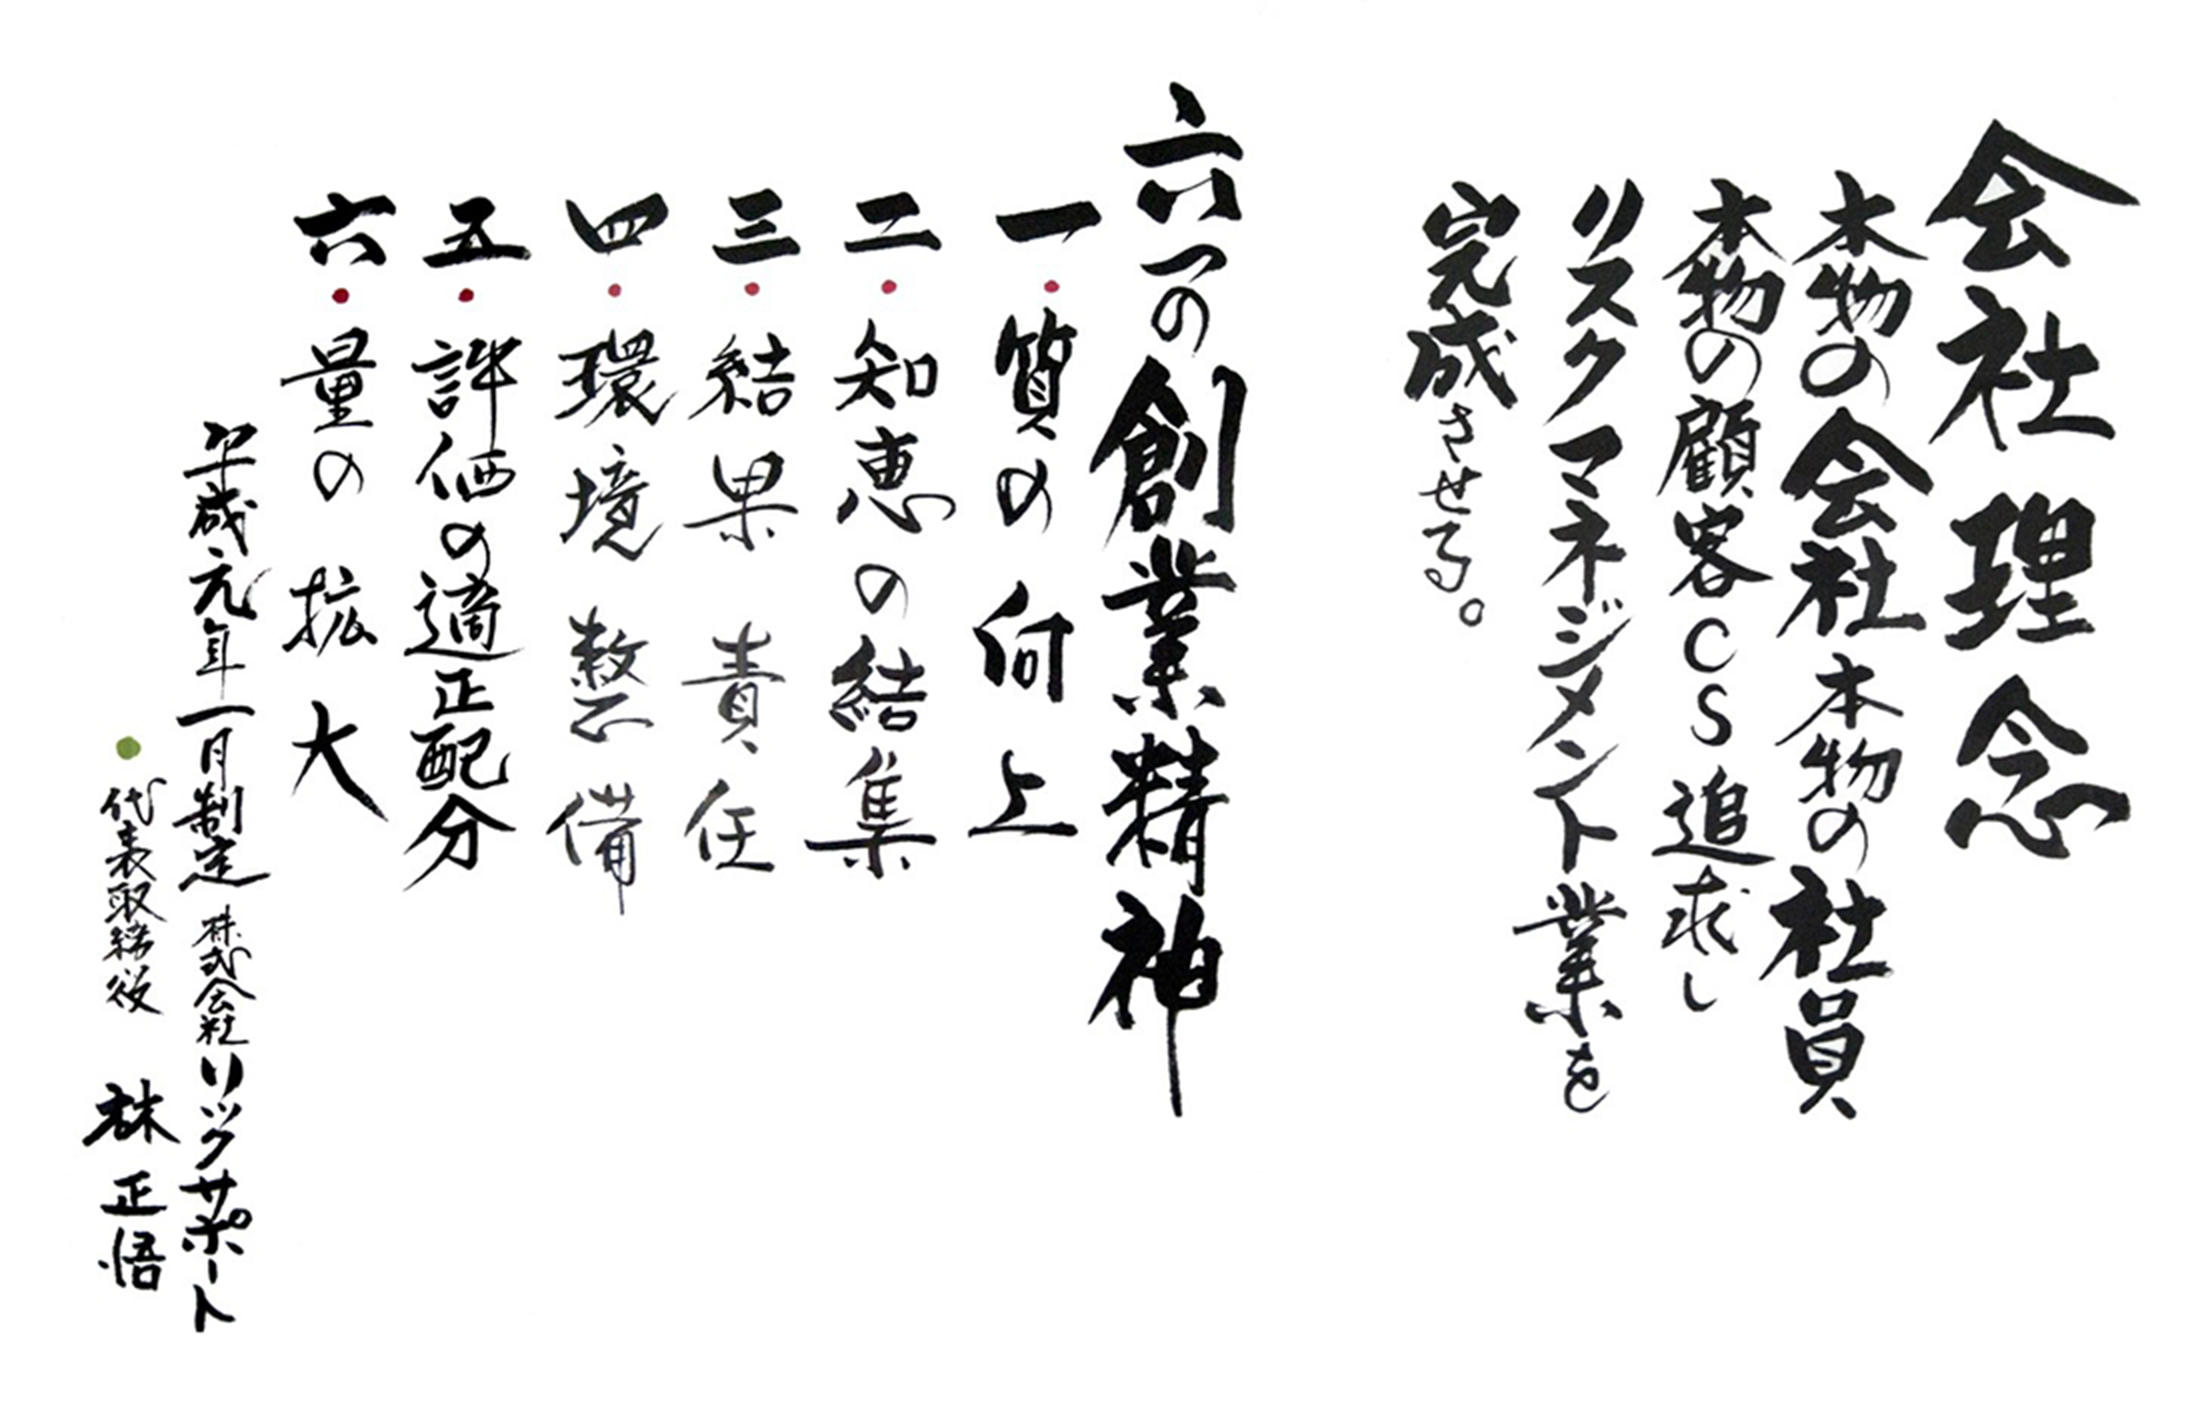 会社理念
本物の会社本物の社員
本物の顧客CS追求し
リスクマネジメント業を
完成させる。
六つの創業精神
一・質の向上
二・知恵の結集
三・結果責任
四・環境整備
五・評価の適正配分
六・量の拡大
平成元年一月制定 株式会社リックサポート
・代表取締役 林正悟